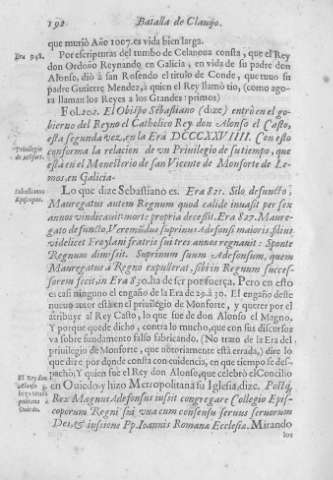 192. Batalla de Clauijo.
que murió Año 1007. es vida bien larga.
Era 948.
Por escripturas del tumbo de Celanoua consta, que el Rey
don Ordoño Reynando en Galicia, en vida de su padre don
Alonso, dió à san Rosendo el titulo de Conde, que tuuo su
padre Gutierre Mendez, à quien el Rey llamò tio, (como ago-
ra llaman los Reyes a los Grandes primos)
Fol. 202. El Obispo Sebastiano (dize) entrò en el go-
bierno del Reyno el Catholico Rey don Alonso el Casto,
esta segunda vez, en la Era DCCCXXVIIII. Con esto
Priuilegio
conforma la relacion de vn Priuilegio de su tiempo, que
està en el Monesterio de san Vicente de Monforte de Le-
mos, en Galicia.
Sebastianus
Episcopus.
Lo que dize Sebastiano es. Era 821. Silo defuncto,
Mauregatus autem Regnum quod calide inuasit per sex
annos vindicauit: morte propria decessit. Era 827. Maure-
gato defuncto, Veremũdus suprinus Adefonsi maioris, filius
videlicet Froylani fratris sui tres annos regnauit: Sponte
Regnum dimissit. Suprinum suum Adefonsum, quem
Mauregatus à Regno expullerat, sibi in Regnum succes-
sorem fecit, in Era 830. ha de ser por fuerça, Pero en esto
es casi ninguno el engaño de la Era de 29. à 30. El engaño deste
nueuo autor està en el priuilegio de Monforte, y querer por el
atribuyr al Rey Casto, lo que fue de don Alonso el Magno.
Y porque quede dicho, contra lo mucho, que con sus discursos
va sobre fundamento falso fabricando. (No trato de la Era del
priuilegio de Monforte, que notoriamente està errada,) dire lo
que dize por donde consta con euidencia, en que tiempo se des-
pachò, Y quien fue el Rey don Alonso, que celebrò el Concilio
El Rey don
Alonso
Ouiedo.
en Ouiedo y hizo Metropolitana su Iglesia, dize. Postq̃
Rex Magnus Adefonsus iussit congregare Collegio Epis-
coporum Regni sui vna cum consensu seruus seruorum
Dei, & iussione Pp. Ioannis Romana Ecclesia. Mirando
los